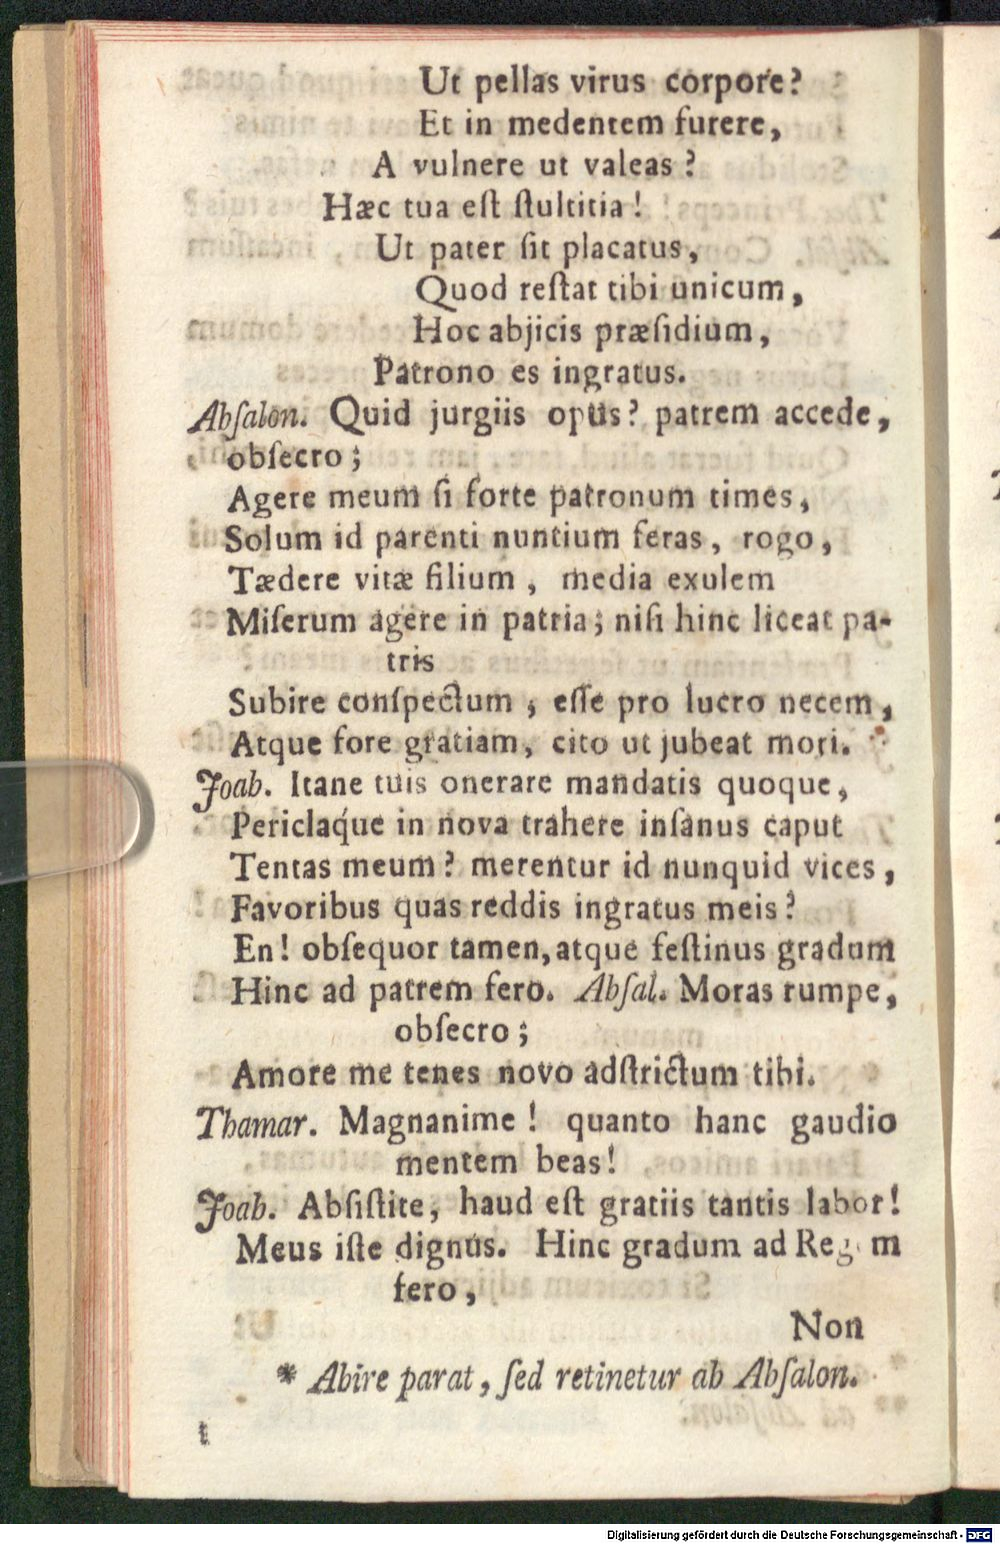 Ut pellas virus corpore?
Et in medentem furere,
A vulnere ut valeas?
Hæc tua eſt ſtultitia!
Ut pater ſit placatus,
Quod reſtat tibi unicum,
Hoc abjicis præſidium,
Patrono es ingratus.
Abſalon. Quid jurgiis opus? patrem accede,
obſecro;
Agere meum ſi forte patronum times,
Solum id parenti nuntium feras, rogo,
Tædere vitæ filium, media exulem
Miſerum agere in patria; niſi hinc liceat pa-
tris
Subire conſpectum, eſſe pro lucro necem,
Atque fore gratiam, cito ut jubeat mori. *
Joab. Itane tuis onerare mandatis quoque,
Periclaque in nova trahere inſanus caput
Tentas meum? merentur id nunquid vices,
Favoribus quas reddis ingratus meis?
En! obſequor tamen, atque feſtinus gradum
Hinc ad patrem fero. Abſal. Moras rumpe,
obſecro;
Amore me tenes novo adſtrictum tibi.
Thamar. Magnanime! quanto hanc gaudio
mentem beas!
Joab. Abſiſtite, haud eſt gratiis tantis labor!
Meus iſte dignus. Hinc gradum ad Regem
fero,
Non
* Abire parat, ſed retinetur ab Abſalon.
Digitalisierung gefördert durch die Deutsche Forschungsgemeinschaft - DFG